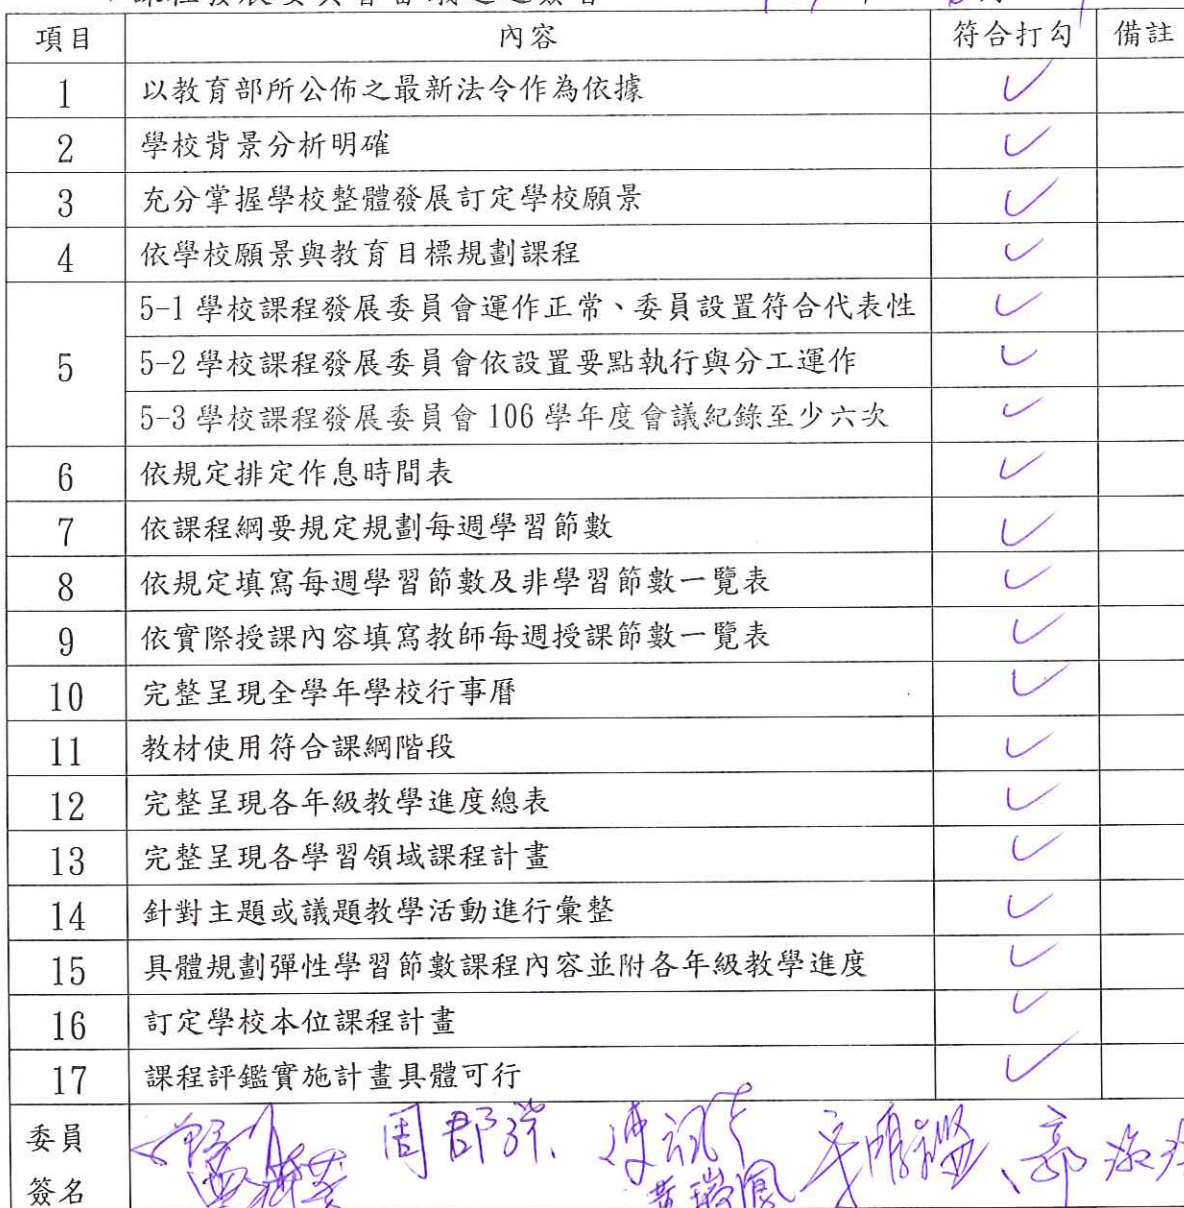 課程發展委員會審議通過簽署
項目 內容 符合打勾 備註
1 以教育部所公佈之最新法令作為依據 ✓
2 學校背景分析明確 ✓
3 充分掌握學校整體發展訂定學校願景 ✓
4 依學校願景與教育目標規劃課程 ✓
5 5-1 學校課程發展委員會運作正常、委員設置符合代表性 ✓
5-2 學校課程發展委員會依設置要點執行與分工運作 ✓
5-3 學校課程發展委員會 106 學年度會議紀錄至少六次 ✓
6 依規定排定作息時間表 ✓
7 依課程綱要規定規劃每週學習節數 ✓
8 依規定填寫每週學習節數及非學習節數一覽表 ✓
9 依實際授課內容填寫教師每週授課節數一覽表 ✓
10 完整呈現全學年學校行事曆 ✓
11 教材使用符合課綱階段 ✓
12 完整呈現各年級教學進度總表 ✓
13 完整呈現各學習領域課程計畫 ✓
14 針對主題或議題教學活動進行彙整 ✓
15 具體規劃彈性學習節數課程內容並附各年級教學進度 ✓
16 訂定學校本位課程計畫 ✓
17 課程評鑑實施計畫具體可行 ✓
委員
簽名 黃瑞鳳